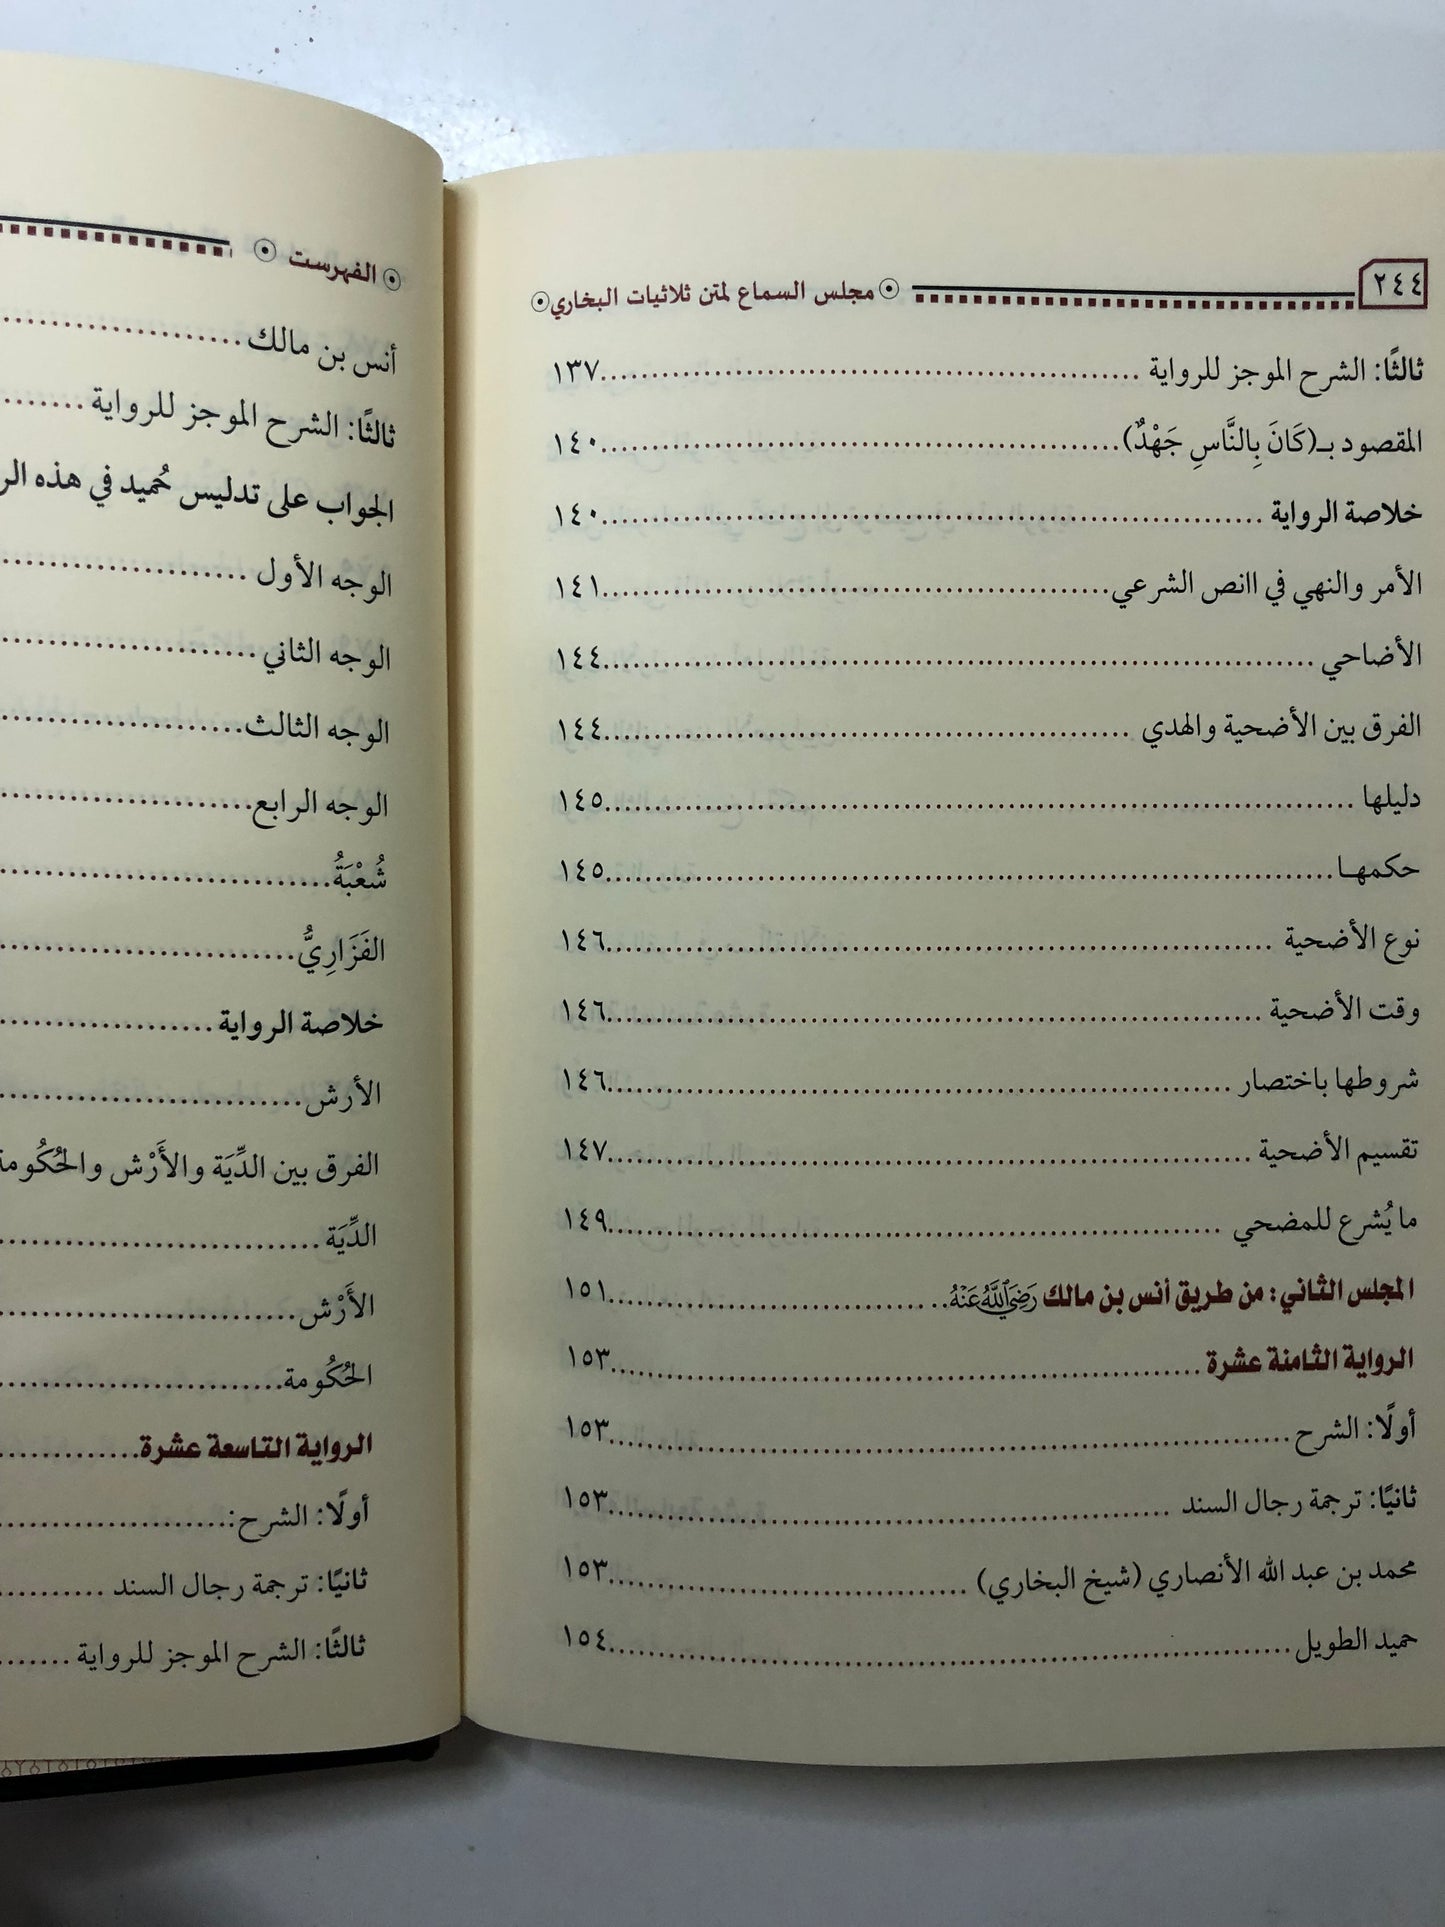 ٢٤٤
مجلس السماع لمتن ثلاثيات البخاري
ثالثًا: الشرح الموجز للرواية ........ ١٣٧
المقصود بـ(كَانَ بِالنَّاسِ جَهْدٌ) ........ ١٤٠
خلاصة الرواية ........ ١٤٠
الأمر والنهي في اانص الشرعي ........ ١٤١
الأضاحي ........ ١٤٤
الفرق بين الأضحية والهدي ........ ١٤٤
دليلها ........ ١٤٥
حكمهـا ........ ١٤٥
نوع الأضحية ........ ١٤٦
وقت الأضحية ........ ١٤٦
شروطها باختصار ........ ١٤٦
تقسيم الأضحية ........ ١٤٧
ما يُشرع للمضحي ........ ١٤٩
المجلس الثاني: من طريق أنس بن مالك رَضِيَ اللَّهُ عَنْهُ ........ ١٥١
الرواية الثامنة عشرة ........ ١٥٣
أولًا: الشرح ........ ١٥٣
ثانيًا: ترجمة رجال السند ........ ١٥٣
محمد بن عبد الله الأنصاري (شيخ البخاري) ........ ١٥٣
حميد الطويل ........ ١٥٤
الفهرست
أنس بن مالك ........
ثالثًا: الشرح الموجز للرواية ........
الجواب على تدليس حُميد في هذه
الوجه الأول ........
الوجه الثاني ........
الوجه الثالث ........
الوجه الرابع ........
شُعْبَةُ ........
الفَزَارِيُّ ........
خلاصة الرواية ........
الأرش ........
الفرق بين الدِّيَة والأَرْش والحُكُومة
الدِّيَة ........
الأَرْش ........
الحُكُومة ........
الرواية التاسعة عشرة ........
أولًا: الشرح: ........
ثانيًا: ترجمة رجال السند ........
ثالثًا: الشرح الموجز للرواية ........